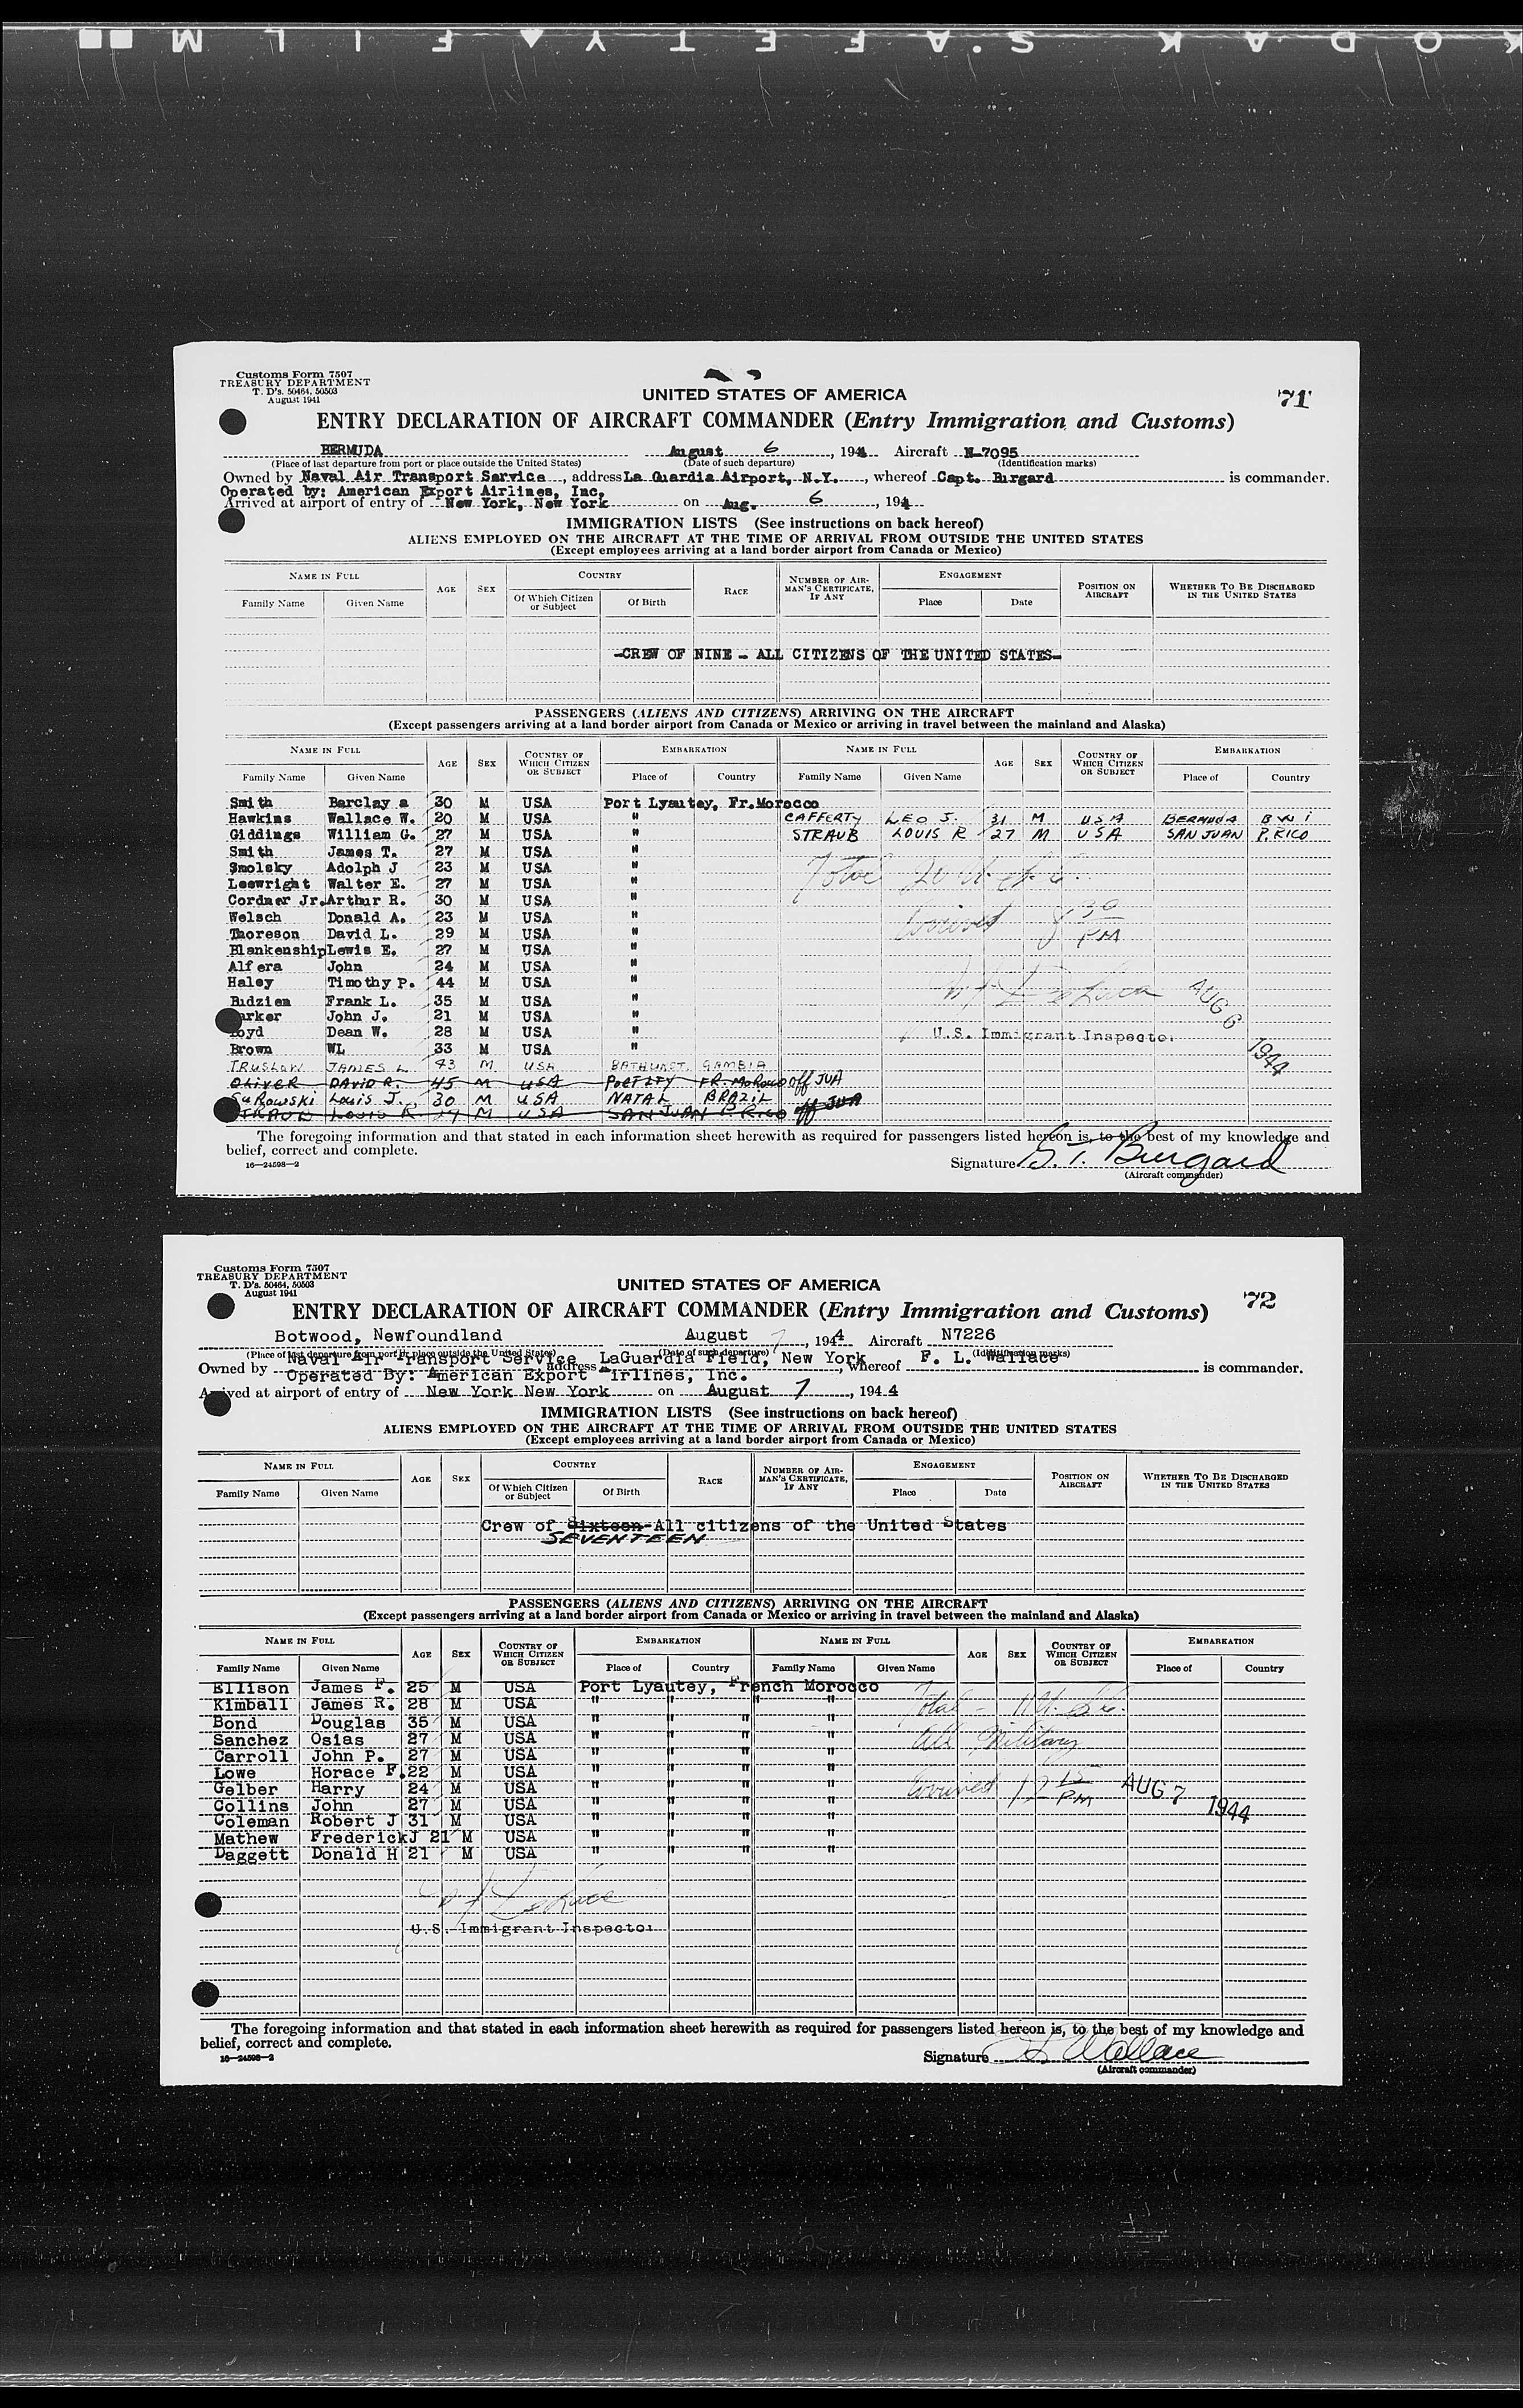 KODAK S.AFETY FILM
Customs Form 7507
TREASURY DEPARTMENT
T. D's. 50464, 50503
August 1941
UNITED STATES OF AMERICA
71
ENTRY DECLARATION OF AIRCRAFT COMMANDER (Entry Immigration and Customs)
BERMUDA August 6, 1944 Aircraft N-7095
(Place of last departure from port or place outside the United States) (Date of such departure) (Identification marks)
Owned by Naval Air Transport Service, address La Guardia Airport, N.Y., whereof Capt. Burgard is commander.
Operated by: American Export Airlines, Inc.
Arrived at airport of entry of New York, New York on Aug. 6, 194
IMMIGRATION LISTS (See instructions on back hereof)
ALIENS EMPLOYED ON THE AIRCRAFT AT THE TIME OF ARRIVAL FROM OUTSIDE THE UNITED STATES
(Except employees arriving at a land border airport from Canada or Mexico)
NAME IN FULL AGE SEX COUNTRY RACE NUMBER OF AIRMAN'S CERTIFICATE, IF ANY ENGAGEMENT POSITION ON AIRCRAFT WHETHER TO BE DISCHARGED IN THE UNITED STATES
Family Name Given Name Of Which Citizen or Subject Of Birth Place Date
-CREW OF NINE - ALL CITIZENS OF THE UNITED STATES-
PASSENGERS (ALIENS AND CITIZENS) ARRIVING ON THE AIRCRAFT
(Except passengers arriving at a land border airport from Canada or Mexico or arriving in travel between the mainland and Alaska)
NAME IN FULL AGE SEX COUNTRY OF WHICH CITIZEN OR SUBJECT EMBARKATION NAME IN FULL AGE SEX COUNTRY OF WHICH CITIZEN OR SUBJECT EMBARKATION
Family Name Given Name Place of Country Family Name Given Name Place of Country
Smith Barclay a 30 M USA Port Lyautey, Fr.Morocco
Hawkins Wallace W. 20 M USA " CAFFERTY LEO J. 31 M USA BERMUDA BWI
Giddings William G. 27 M USA " STRAUB LOUIS R 27 M USA SAN JUAN P.RICO
Smith James T. 27 M USA "
Smolsky Adolph J 23 M USA " Total
Leewright Walter E. 27 M USA "
Cordner Jr. Arthur R. 30 M USA "
Welsch Donald A. 23 M USA " Arrived 8 30 PM
Thoreson David L. 29 M USA "
Blankenship Lewis E. 27 M USA "
Alfera John 24 M USA "
Haley Timothy P. 44 M USA "
Budzien Frank L. 35 M USA " AUG 6 1944
arker John J. 21 M USA "
oyd Dean W. 28 M USA " U.S. Immigrant Inspector
Brown WL 33 M USA "
TRUSLOW JAMES L 43 M USA BATHURST, GAMBIA
OLIVER DAVID R. 45 M USA PORT LTY FR. MOROCO off JUA
SuRowski Louis J. 30 M USA NATAL BRAZIL
STRAUB Louis R. 27 M USA SAN JUAN P. RICO off JUA
The foregoing information and that stated in each information sheet herewith as required for passengers listed hereon is, to the best of my knowledge and
belief, correct and complete.
16—24598-2
Signature G. T. Burgard
(Aircraft commander)
Customs Form 7507
TREASURY DEPARTMENT
T. D's. 50464, 50503
August 1941
UNITED STATES OF AMERICA
72
ENTRY DECLARATION OF AIRCRAFT COMMANDER (Entry Immigration and Customs)
Botwood, Newfoundland August 7, 1944 Aircraft N7226
(Place of last departure from port or place outside the United States) (Date of such departure) (Identification marks)
Owned by Naval Air Transport Service, address LaGuardia Field, New York, whereof F. L. Wallace is commander.
Operated By: American Export Airlines, Inc.
Arrived at airport of entry of New York New York on August 7, 1944
IMMIGRATION LISTS (See instructions on back hereof)
ALIENS EMPLOYED ON THE AIRCRAFT AT THE TIME OF ARRIVAL FROM OUTSIDE THE UNITED STATES
(Except employees arriving at a land border airport from Canada or Mexico)
NAME IN FULL AGE SEX COUNTRY RACE NUMBER OF AIRMAN'S CERTIFICATE, IF ANY ENGAGEMENT POSITION ON AIRCRAFT WHETHER TO BE DISCHARGED IN THE UNITED STATES
Family Name Given Name Of Which Citizen or Subject Of Birth Place Date
Crew of Sixteen-All citizens of the United States
SEVENTEEN
PASSENGERS (ALIENS AND CITIZENS) ARRIVING ON THE AIRCRAFT
(Except passengers arriving at a land border airport from Canada or Mexico or arriving in travel between the mainland and Alaska)
NAME IN FULL AGE SEX COUNTRY OF WHICH CITIZEN OR SUBJECT EMBARKATION NAME IN FULL AGE SEX COUNTRY OF WHICH CITIZEN OR SUBJECT EMBARKATION
Family Name Given Name Place of Country Family Name Given Name Place of Country
Ellison James F. 25 M USA Port Lyautey, French Morocco
Kimball James R. 28 M USA " " " " Total - 11
Bond Douglas 35 M USA " " " "
Sanchez Osias 27 M USA " " " " All Military
Carroll John P. 27 M USA " " " "
Lowe Horace F. 22 M USA " " " "
Gelber Harry 24 M USA " " " " Arrived 12 15 PM AUG 7 1944
Collins John 27 M USA " " " "
Coleman Robert J 31 M USA " " " "
Mathew Frederick J 21 M USA " " " "
Daggett Donald H 21 M USA " " " "
U.S. Immigrant Inspector
The foregoing information and that stated in each information sheet herewith as required for passengers listed hereon is, to the best of my knowledge and
belief, correct and complete.
16—24598-2
Signature F L Wallace
(Aircraft commander)